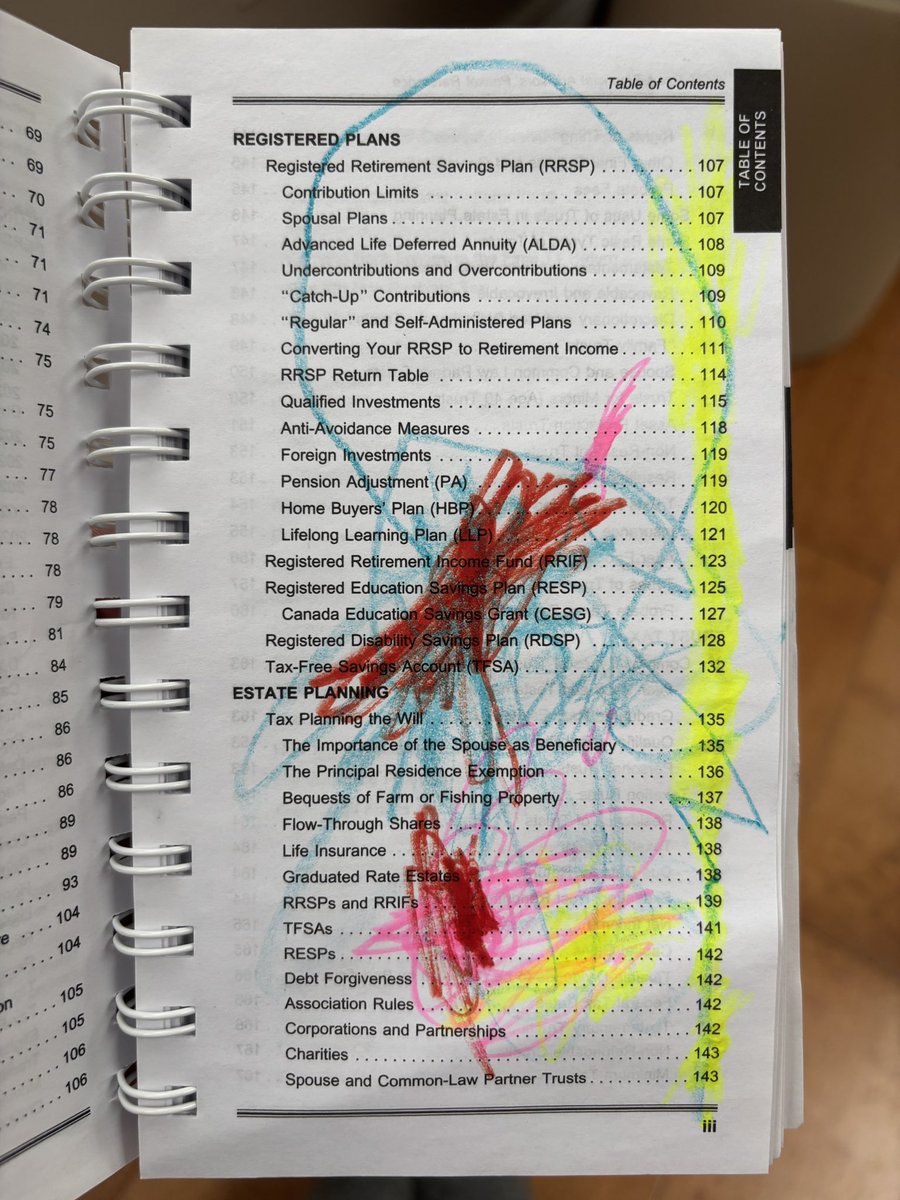 69
69
70
71
71
71
74
75
75
75
77
78
78
78
79
81
84
85
86
86
86
89
89
93
104
104
105
105
106
106
Table of Contents
TABLE OF
CONTENTS
REGISTERED PLANS
Registered Retirement Savings Plan (RRSP) . . . . . . . . . . . . . 107
Contribution Limits . . . . . . . . . . . . . . . . . . . . . . . . . . . . . . . 107
Spousal Plans . . . . . . . . . . . . . . . . . . . . . . . . . . . . . . . . . . 107
Advanced Life Deferred Annuity (ALDA) . . . . . . . . . . . . . 108
Undercontributions and Overcontributions . . . . . . . . . . . . 109
“Catch-Up” Contributions . . . . . . . . . . . . . . . . . . . . . . . . . 109
“Regular” and Self-Administered Plans . . . . . . . . . . . . . . 110
Converting Your RRSP to Retirement Income . . . . . . . . . 111
RRSP Return Table . . . . . . . . . . . . . . . . . . . . . . . . . . . . . 114
Qualified Investments . . . . . . . . . . . . . . . . . . . . . . . . . . . . 115
Anti-Avoidance Measures . . . . . . . . . . . . . . . . . . . . . . . . . 118
Foreign Investments . . . . . . . . . . . . . . . . . . . . . . . . . . . . . 119
Pension Adjustment (PA) . . . . . . . . . . . . . . . . . . . . . . . . . 119
Home Buyers’ Plan (HBP) . . . . . . . . . . . . . . . . . . . . . . . . 120
Lifelong Learning Plan (LLP) . . . . . . . . . . . . . . . . . . . . . . 121
Registered Retirement Income Fund (RRIF) . . . . . . . . . . . . . 123
Registered Education Savings Plan (RESP) . . . . . . . . . . . . . 125
Canada Education Savings Grant (CESG) . . . . . . . . . . . . 127
Registered Disability Savings Plan (RDSP) . . . . . . . . . . . . . . 128
Tax-Free Savings Account (TFSA) . . . . . . . . . . . . . . . . . . . . 132
ESTATE PLANNING
Tax Planning the Will . . . . . . . . . . . . . . . . . . . . . . . . . . . . . . 135
The Importance of the Spouse as Beneficiary . . . . . . . . . 135
The Principal Residence Exemption . . . . . . . . . . . . . . . . . 136
Bequests of Farm or Fishing Property . . . . . . . . . . . . . . . 137
Flow-Through Shares . . . . . . . . . . . . . . . . . . . . . . . . . . . . 138
Life Insurance . . . . . . . . . . . . . . . . . . . . . . . . . . . . . . . . . . 138
Graduated Rate Estates . . . . . . . . . . . . . . . . . . . . . . . . . . 138
RRSPs and RRIFs . . . . . . . . . . . . . . . . . . . . . . . . . . . . . . 139
TFSAs . . . . . . . . . . . . . . . . . . . . . . . . . . . . . . . . . . . . . . . . 141
RESPs . . . . . . . . . . . . . . . . . . . . . . . . . . . . . . . . . . . . . . . 142
Debt Forgiveness . . . . . . . . . . . . . . . . . . . . . . . . . . . . . . . 142
Association Rules . . . . . . . . . . . . . . . . . . . . . . . . . . . . . . . 142
Corporations and Partnerships . . . . . . . . . . . . . . . . . . . . . 142
Charities . . . . . . . . . . . . . . . . . . . . . . . . . . . . . . . . . . . . . . 143
Spouse and Common-Law Partner Trusts . . . . . . . . . . . . 143
iii